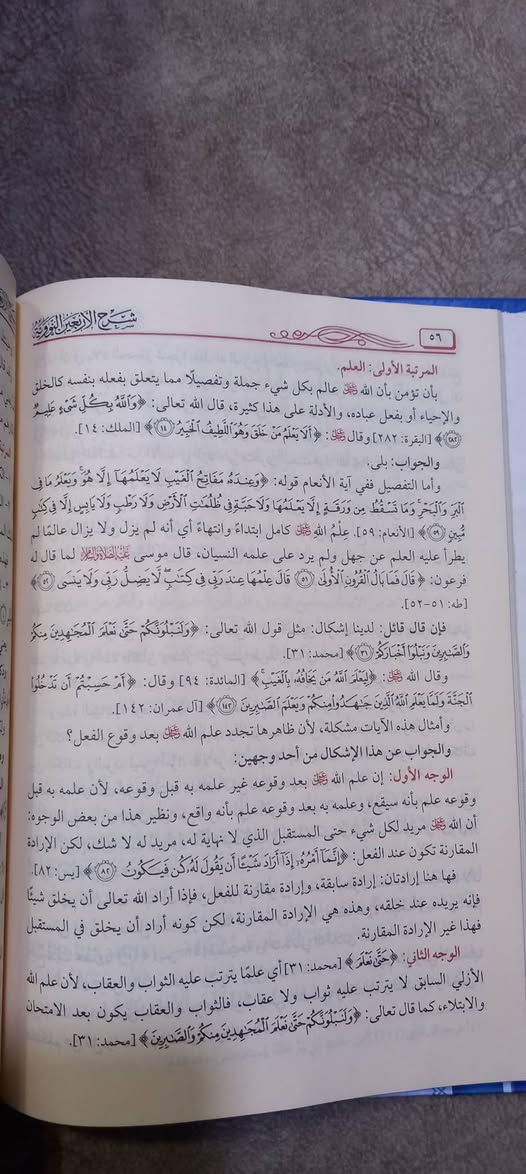 شرح الأربعين النووية
٥٦
المرتبة الأولى: العلم.
بأن تؤمن بأن الله ﷻ عالم بكل شيء جملة وتفصيلًا مما يتعلق بفعله بنفسه كالخلق
والإحياء أو بفعل عباده، والأدلة على هذا كثيرة، قال الله تعالى: ﴿وَٱللَّهُ بِكُلِّ شَىْءٍ عَلِيمٌ
﴿٢٨٢﴾﴾ [البقرة: ٢٨٢] وقال ﷻ: ﴿أَلَا يَعْلَمُ مَنْ خَلَقَ وَهُوَ ٱللَّطِيفُ ٱلْخَبِيرُ ﴿١٤﴾﴾ [الملك: ١٤].
والجواب: بلى.
وأما التفصيل ففي آية الأنعام قوله: ﴿وَعِندَهُۥ مَفَاتِحُ ٱلْغَيْبِ لَا يَعْلَمُهَآ إِلَّا هُوَ ۚ وَيَعْلَمُ مَا فِى
ٱلْبَرِّ وَٱلْبَحْرِ ۚ وَمَا تَسْقُطُ مِن وَرَقَةٍ إِلَّا يَعْلَمُهَا وَلَا حَبَّةٍ فِى ظُلُمَٰتِ ٱلْأَرْضِ وَلَا رَطْبٍ وَلَا يَابِسٍ إِلَّا فِى كِتَٰبٍ
مُّبِينٍ ﴿٥٩﴾﴾ [الأنعام: ٥٩]. عِلْمُ اللهِ ﷻ كامل ابتداءً وانتهاءً أي أنه لم يزل ولا يزال عالمًا لم
يطرأ عليه العلم عن جهل ولم يرد على علمه النسيان، قال موسى عليه الصلاة والسلام لما قال له
فرعون: ﴿قَالَ فَمَا بَالُ ٱلْقُرُونِ ٱلْأُولَىٰ ﴿٥١﴾ قَالَ عِلْمُهَا عِندَ رَبِّى فِى كِتَٰبٍ ۖ لَّا يَضِلُّ رَبِّى وَلَا يَنسَى ﴿٥٢﴾﴾
[طه: ٥١-٥٢].
فإن قال قائل: لدينا إشكال: مثل قول الله تعالى: ﴿وَلَنَبْلُوَنَّكُمْ حَتَّىٰ نَعْلَمَ ٱلْمُجَٰهِدِينَ مِنكُمْ
وَٱلصَّٰبِرِينَ وَنَبْلُوَا۟ أَخْبَارَكُمْ ﴿٣١﴾﴾ [محمد: ٣١].
وقال الله ﷻ: ﴿لِيَعْلَمَ ٱللَّهُ مَن يَخَافُهُۥ بِٱلْغَيْبِ﴾ [المائدة: ٩٤] وقال: ﴿أَمْ حَسِبْتُمْ أَن تَدْخُلُوا۟
ٱلْجَنَّةَ وَلَمَّا يَعْلَمِ ٱللَّهُ ٱلَّذِينَ جَٰهَدُوا۟ مِنكُمْ وَيَعْلَمَ ٱلصَّٰبِرِينَ ﴿١٤٢﴾﴾ [آل عمران: ١٤٢].
وأمثال هذه الآيات مشكلة، لأن ظاهرها تجدد علم الله ﷻ بعد وقوع الفعل؟
والجواب عن هذا الإشكال من أحد وجهين:
الوجه الأول: إن علم الله ﷻ بعد وقوعه غير علمه به قبل وقوعه، لأن علمه به قبل
وقوعه علم بأنه سيقع، وعلمه به بعد وقوعه علم بأنه واقع، ونظير هذا من بعض الوجوه:
أن الله ﷻ مريد لكل شيء حتى المستقبل الذي لا نهاية له، مريد له لا شك، لكن الإرادة
المقارنة تكون عند الفعل: ﴿إِنَّمَآ أَمْرُهُۥٓ إِذَآ أَرَادَ شَيْـًٔا أَن يَقُولَ لَهُۥ كُن فَيَكُونُ ﴿٨٢﴾﴾ [يس: ٨٢].
فها هنا إرادتان: إرادة سابقة، وإرادة مقارنة للفعل، فإذا أراد الله تعالى أن يخلق شيئًا
فإنه يريده عند خلقه، وهذه هي الإرادة المقارنة، لكن كونه أراد أن يخلق في المستقبل
فهذا غير الإرادة المقارنة.
الوجه الثاني: ﴿حَتَّىٰ نَعْلَمَ﴾ [محمد: ٣١] أي علمًا يترتب عليه الثواب والعقاب، لأن علم الله
الأزلي السابق لا يترتب عليه ثواب ولا عقاب، فالثواب والعقاب يكون بعد الامتحان
والابتلاء، كما قال تعالى: ﴿وَلَنَبْلُوَنَّكُمْ حَتَّىٰ نَعْلَمَ ٱلْمُجَٰهِدِينَ مِنكُمْ وَٱلصَّٰبِرِينَ﴾ [محمد: ٣١].